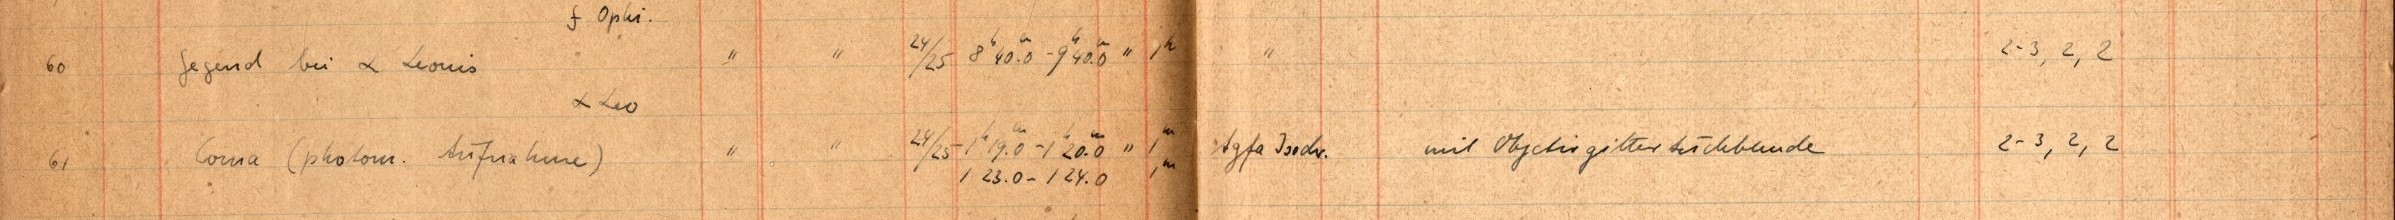 f Ophi.
60 Gegend bei α Leonis " " 24/25 8h 40.0m - 9h 40.0m " 1h " 2-3, 2, 2
α Leo
61 Coma (photom. Aufnahme) " " 24/25 1h 19.0m - 1h 20.0m " 1m Agfa Isochr. mit Objektivgitter 2-3, 2, 2
1 23.0 - 1 24.0 1m